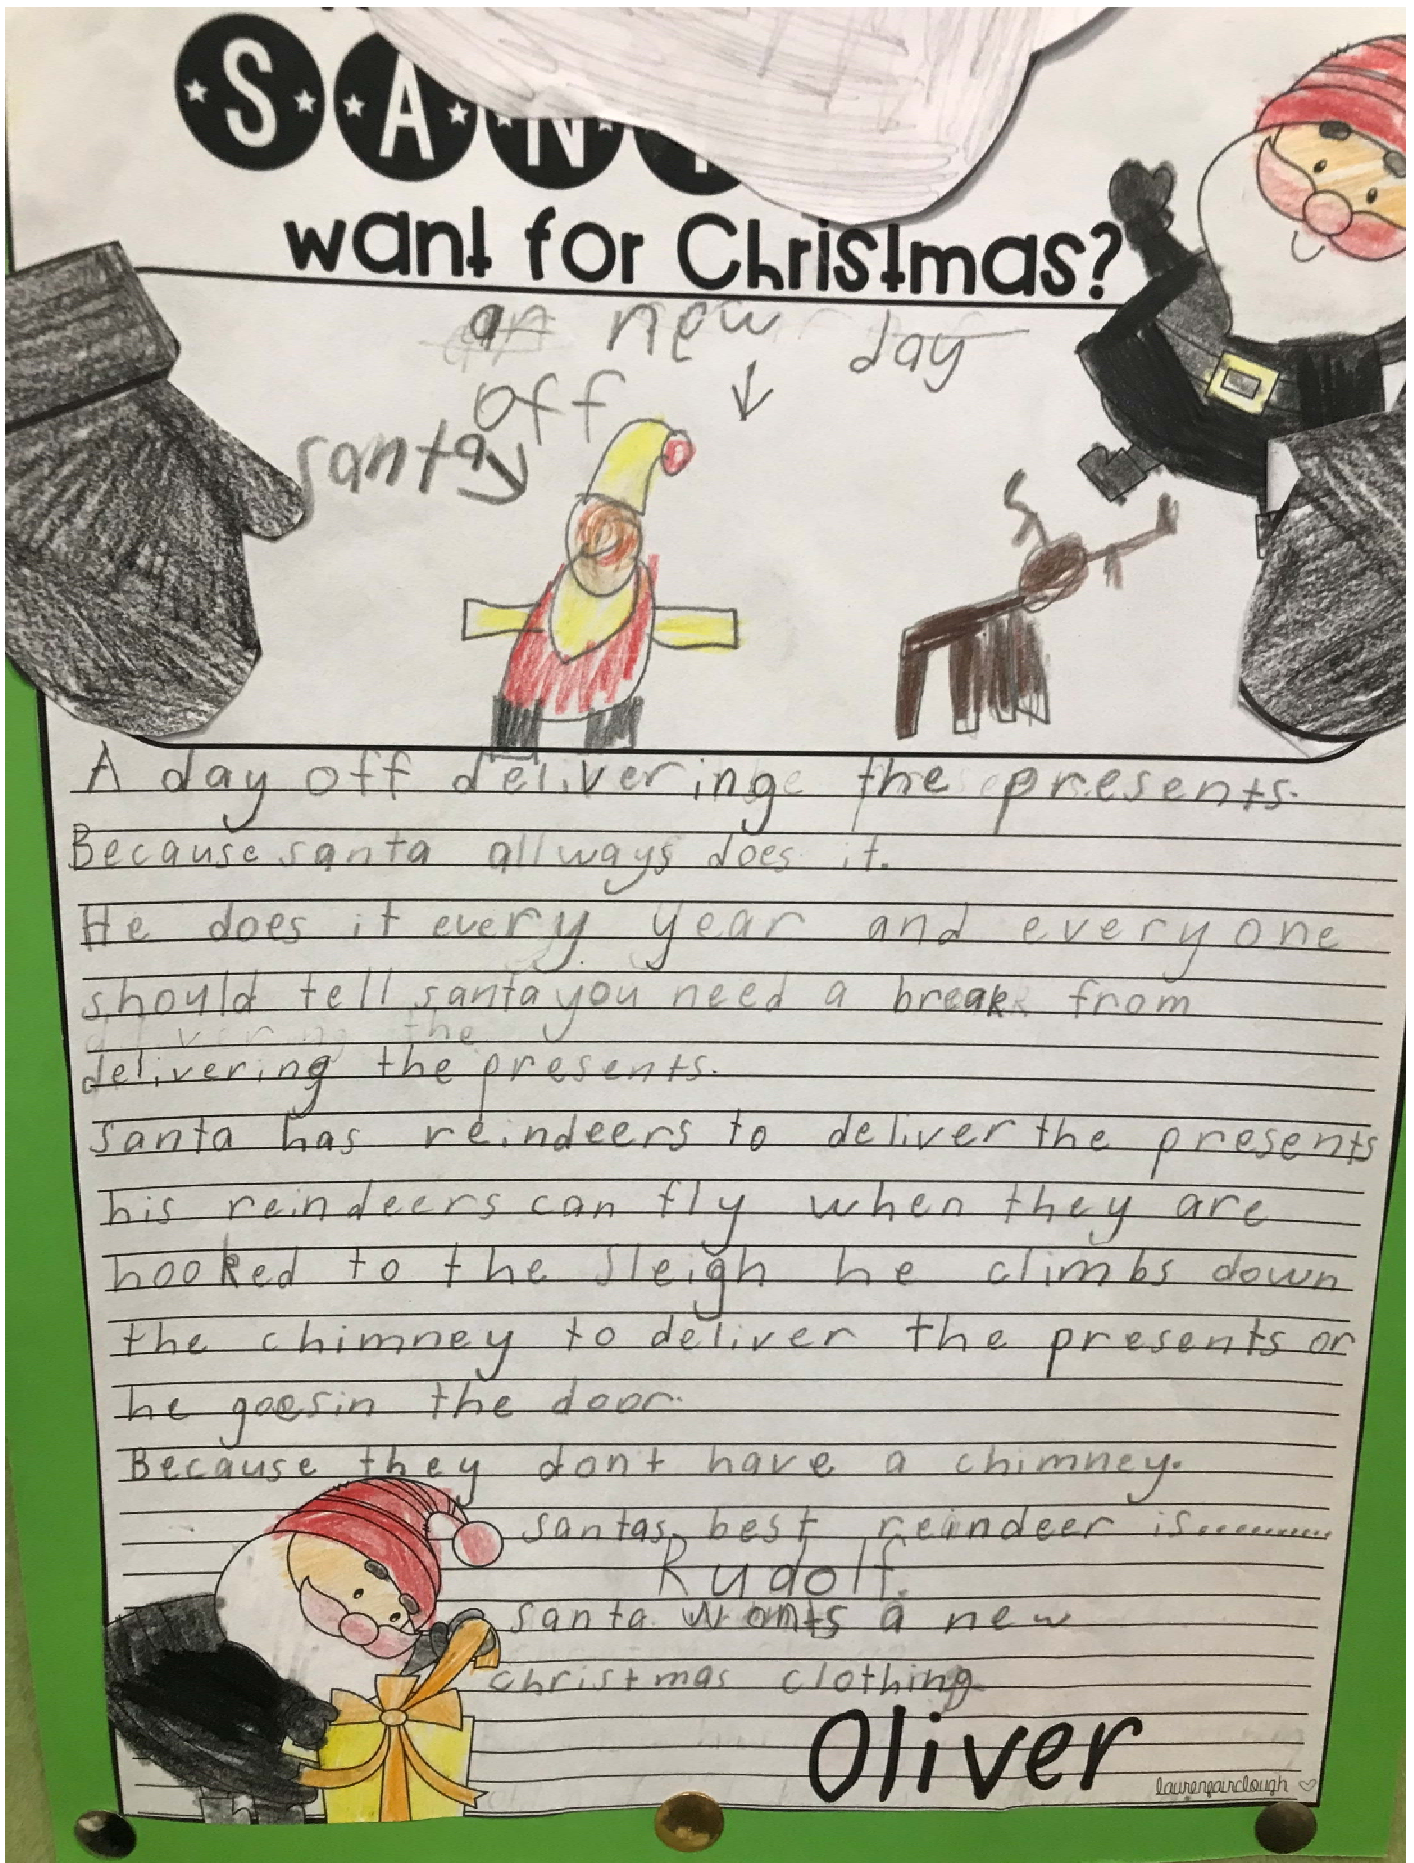 SAN
want for Christmas?
an new day
off
santa
A day off delivering the presents.
Because santa allways does it.
He does it every year and everyone
should tell santa you need a break from
delivering the presents.
santa has reindeers to deliver the presents
his reindeers can fly when they are
hooked to the sleigh he climbs down
the chimney to deliver the presents or
he goes in the door.
Because they don't have a chimney.
santas best reindeer is..........
Rudolf.
santa wants a new
christmas clothing
Oliver
laurenfairclough